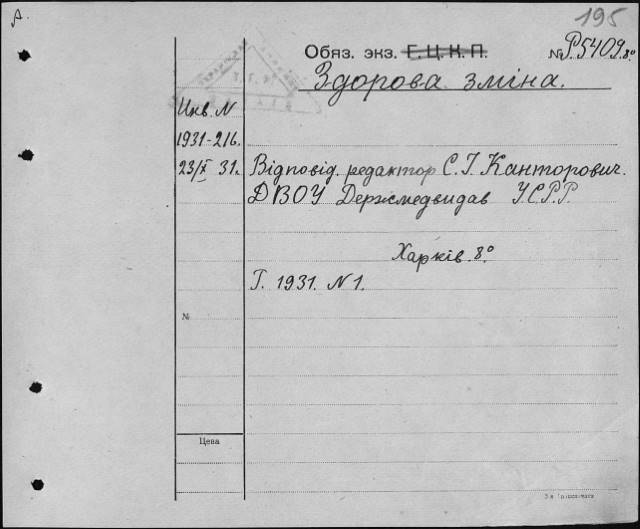 А.
195
Обяз. экз. Г.Ц.К.П. № P5409.8°
Здорова зміна.
Инв. N
1931-216.
23/X 31. Відповід. редактор С.І. Канторович.
ДВОУ Держмедвидав УСРР.
Харків. 8°
Г. 1931. N 1.
№
Цена